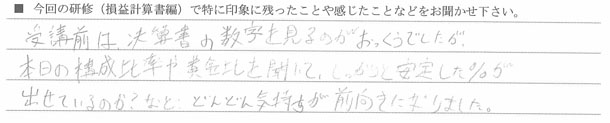 ■ 今回の研修（損益計算書編）で特に印象に残ったことや感じたことなどをお聞かせ下さい。
受講前は、決算書の数字を見るのがおっくうでしたが、
本日の構成比率や黄金比を聞いて、しっかりと安定した％が
出せているのか？など、どんどん気持ちが前向きになりました。